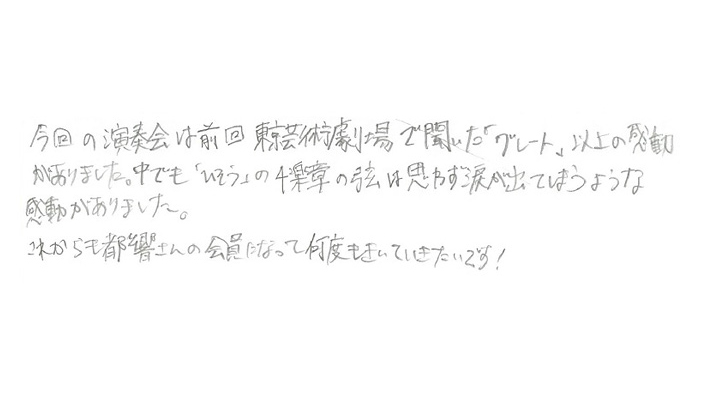 今回の演奏会は前回東京芸術劇場で聞いた「グレート」以上の感動
がありました。中でも「ひそう」の4楽章の弦は思わず涙が出てしまうような
感動がありました。
これからも都響さんの会員になって何度もきいていきたいです!